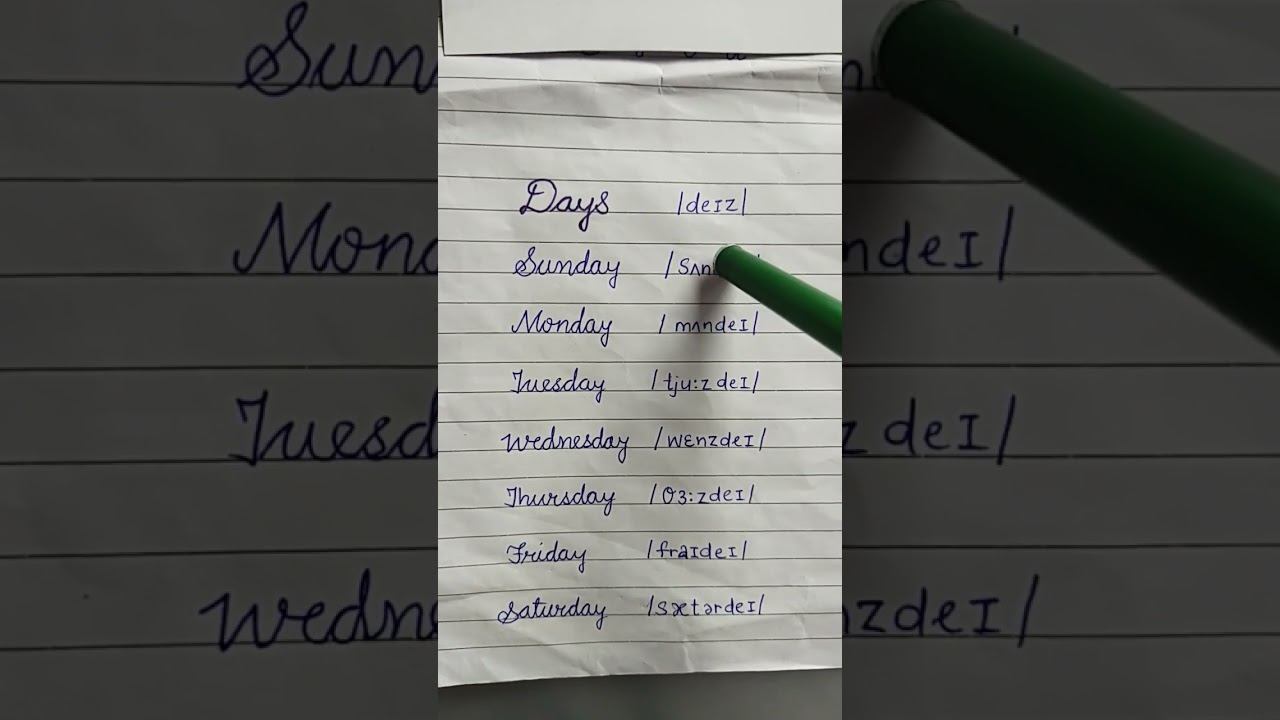 Days /deɪz/
Sunday /sʌn
Monday /mʌndeɪ/
Tuesday /tju:zdeɪ/
Wednesday /wɛnzdeɪ/
Thursday /θɜ:zdeɪ/
Friday /fraɪdeɪ/
Saturday /sætərdeɪ/